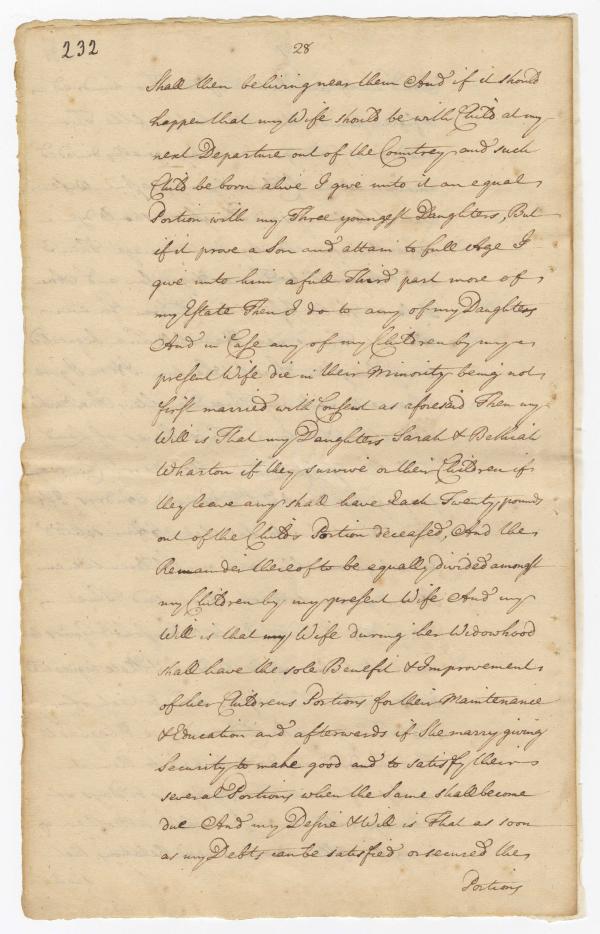 232
28
Shall then be living near them And if it should
happen that my Wife should be with Child at my
next Departure out of the Countrey and such
Child be born alive I give unto it an equal
Portion with my Three youngest Daughters, But
if it prove a Son and attain to full Age I
give unto him a full Third part more of
my Estate Then I do to any of my Daughters
And in Case any of my Children by my
present Wife die in their Minority being not
first married with Consent as aforesaid Then my
Will is That my Daughters Sarah & Bethiah
Wharton if they survive or their Children if
they leave any shall have Each Twenty pounds
out of the Childs Portion deceased, And the
Remainder thereof to be equally divided amongst
my Children by my present Wife And my
Will is that my Wife during her Widowhood
shall have the sole Benefit & Improvement
of her Childrens Portions for their Maintenance
& Education and afterwards if She marry giving
Security to make good and to satisfy their
several Portions when the Same shall become
due And my Desire & Will is That as soon
as my Debts can be satisfied or secured the
Portions